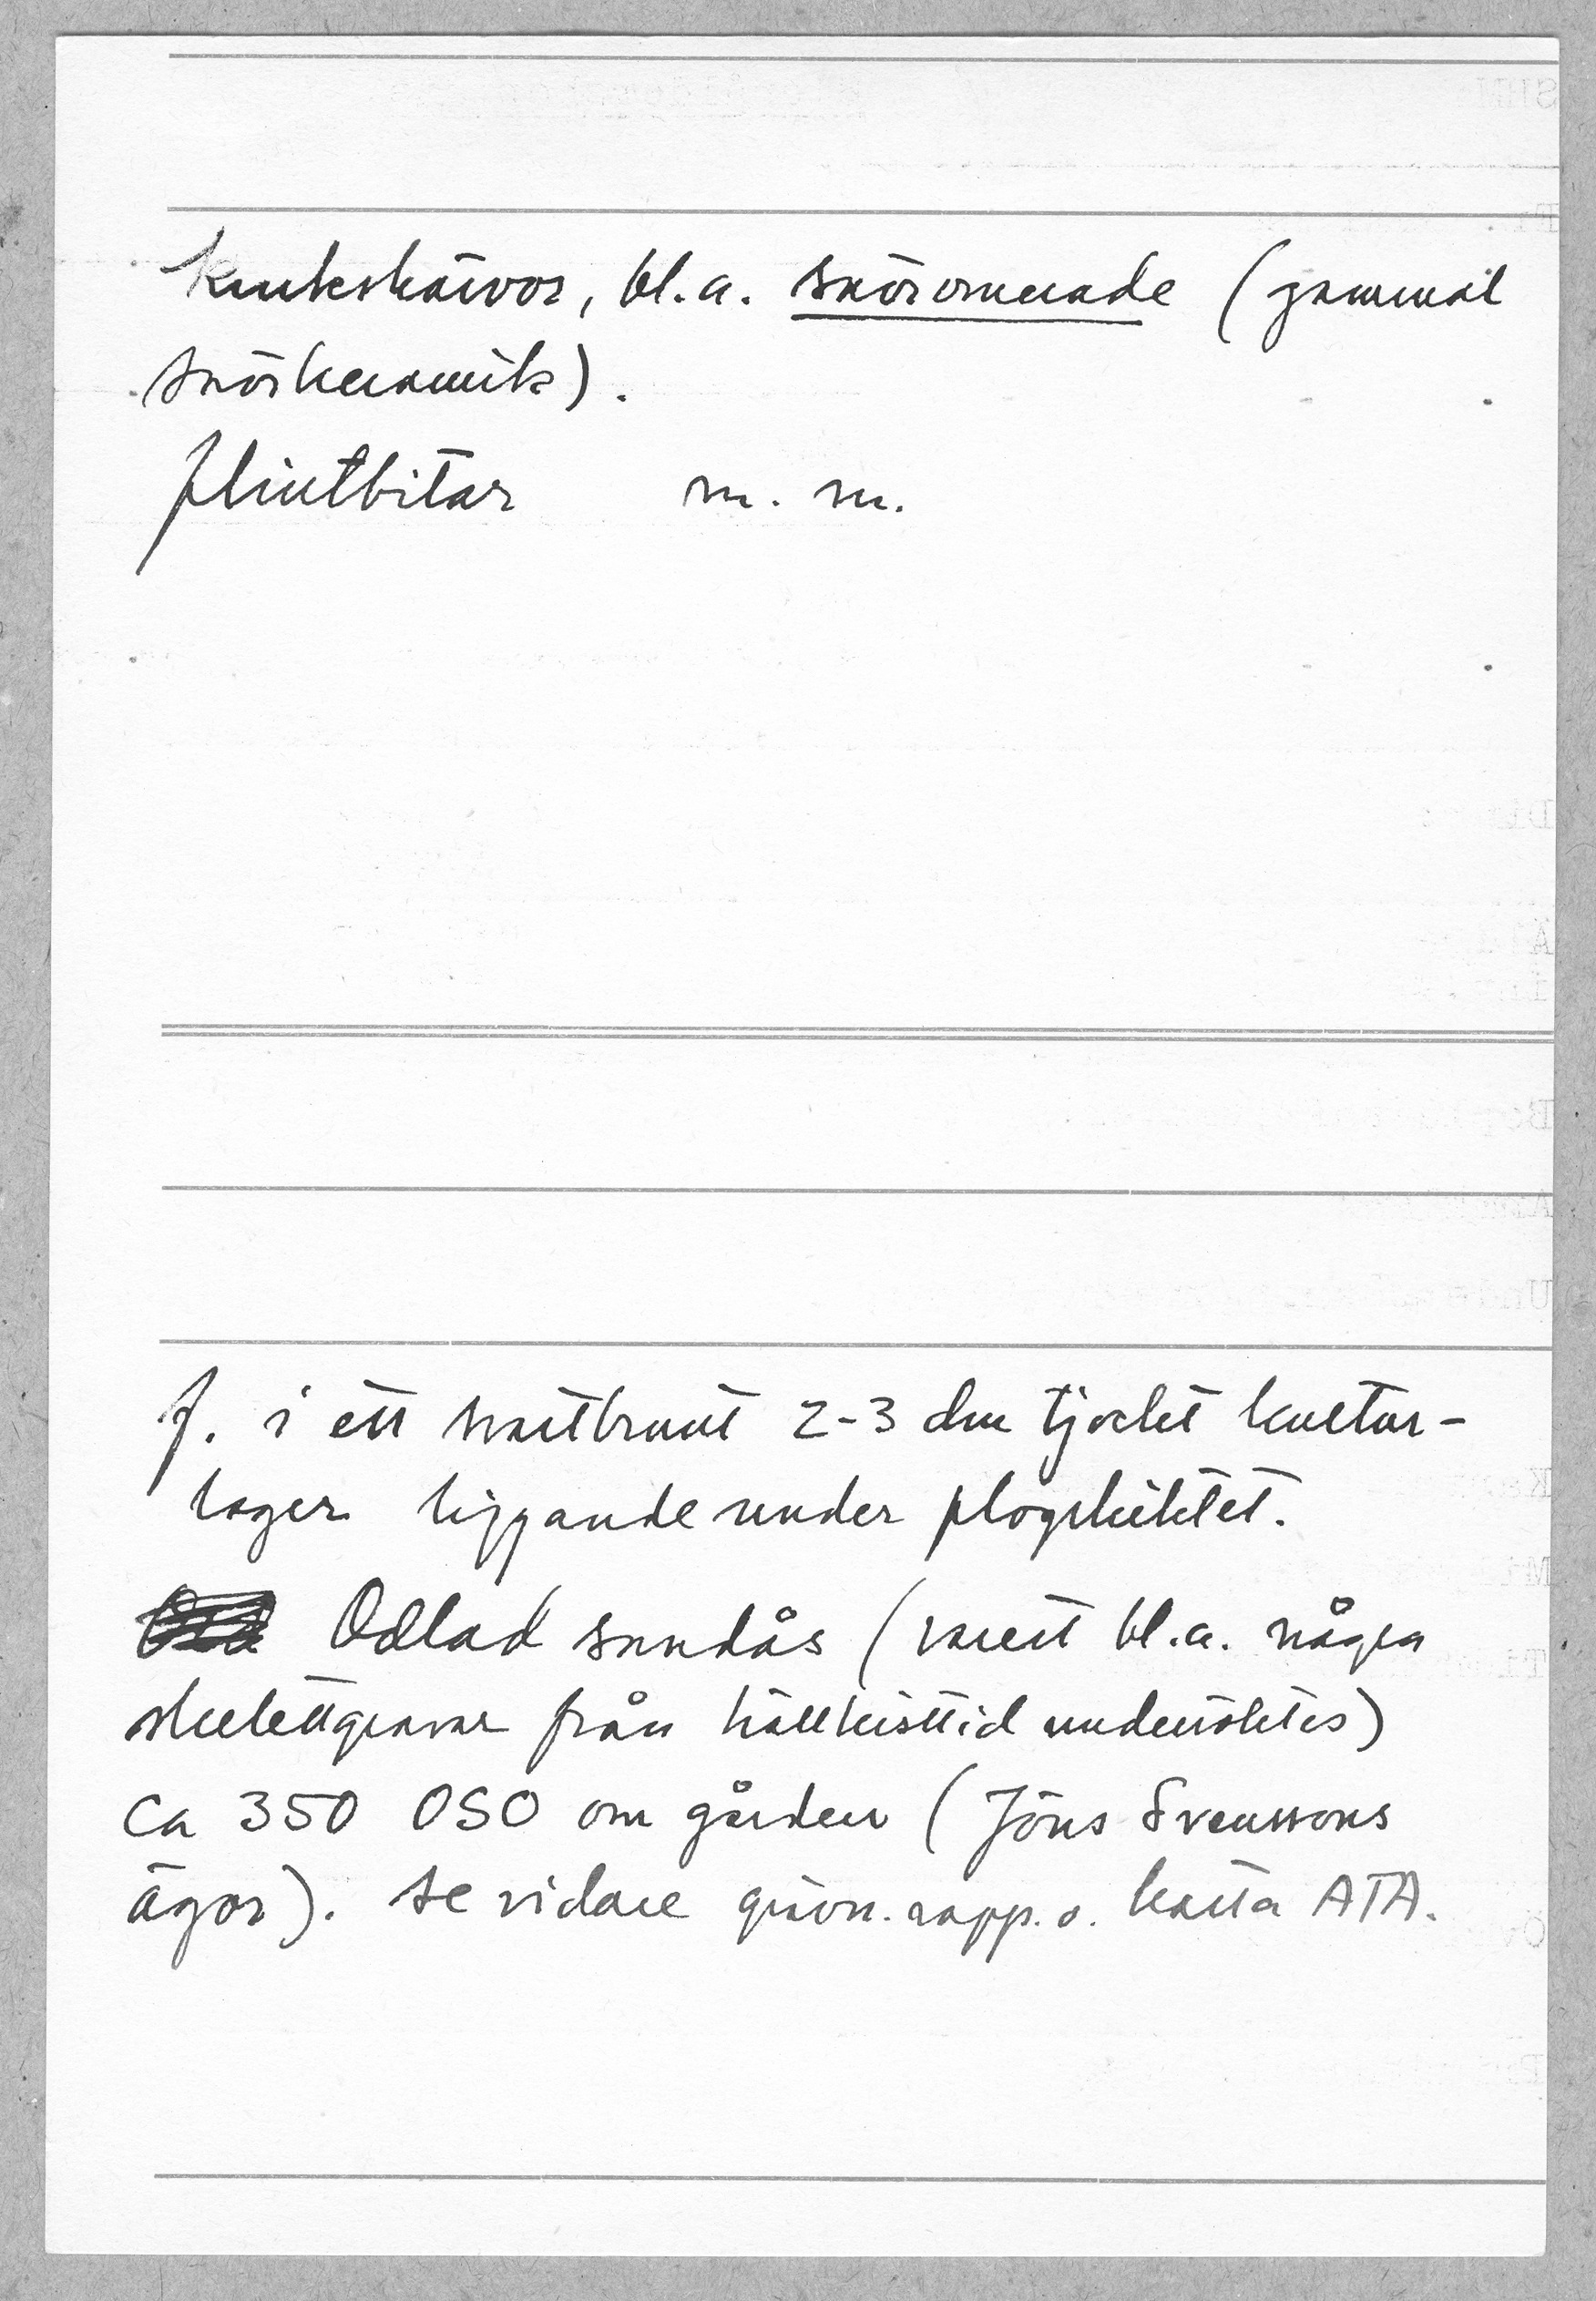 Krukskärvor, bl.a. snörornerade (gammal
snörkeramik).
flintbitar m. m.
f. i ett svartbrunt 2-3 dm tjockt kultur-
lager liggande under plogskiktet.
Odlad sandås (varest bl.a. några
skelettgravar från hällkisttid undersöktes)
ca 350 OSO om gården (Jöns Svenssons
ägor). se vidare grävn. rapp. o. karta ATA.